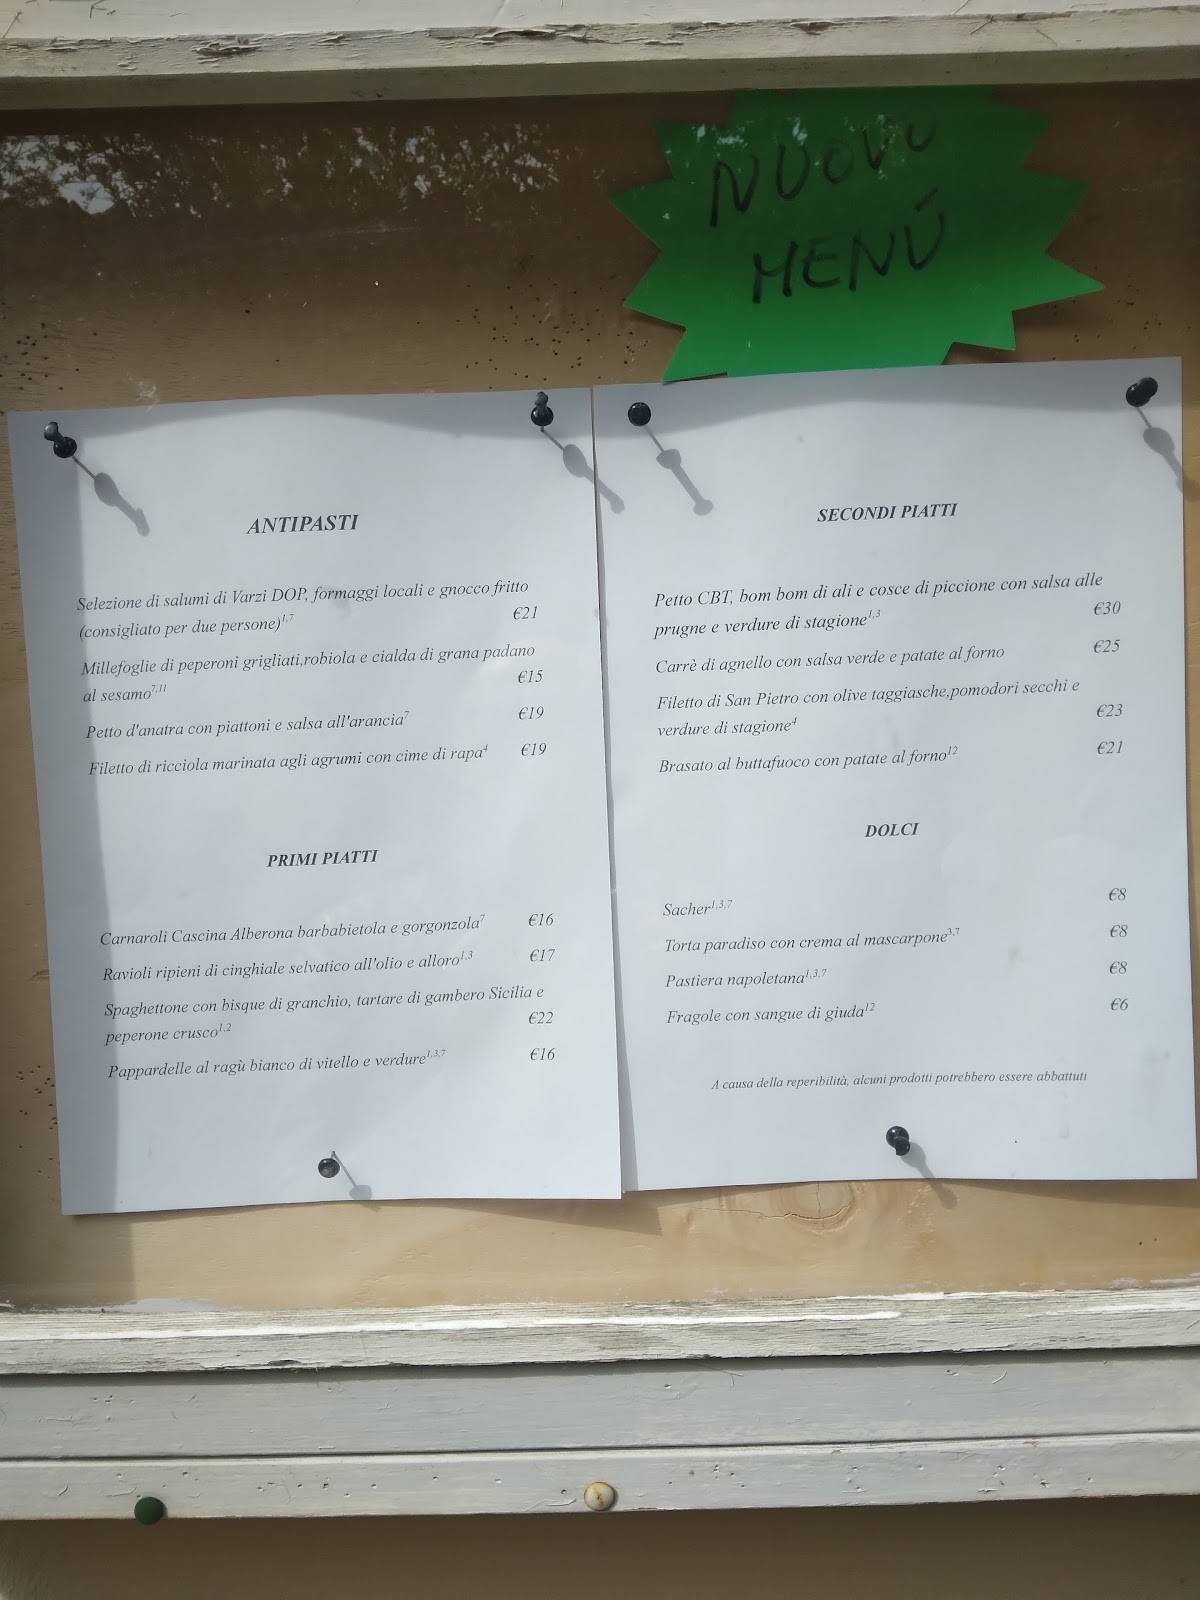 NUOVO
MENÚ
ANTIPASTI
Selezione di salumi di Varzi DOP, formaggi locali e gnocco fritto
(consigliato per due persone)1,7 €21
Millefoglie di peperoni grigliati,robiola e cialda di grana padano
al sesamo7,11 €15
Petto d'anatra con piattoni e salsa all'arancia7 €19
Filetto di ricciola marinata agli agrumi con cime di rapa4 €19
PRIMI PIATTI
Carnaroli Cascina Alberona barbabietola e gorgonzola7 €16
Ravioli ripieni di cinghiale selvatico all'olio e alloro1,3 €17
Spaghettone con bisque di granchio, tartare di gambero Sicilia e
peperone crusco1,2 €22
Pappardelle al ragù bianco di vitello e verdure1,3,7 €16
SECONDI PIATTI
Petto CBT, bom bom di ali e cosce di piccione con salsa alle
prugne e verdure di stagione1,3 €30
Carrè di agnello con salsa verde e patate al forno €25
Filetto di San Pietro con olive taggiasche,pomodori secchi e
verdure di stagione4 €23
Brasato al buttafuoco con patate al forno12 €21
DOLCI
Sacher1,3,7 €8
Torta paradiso con crema al mascarpone3,7 €8
Pastiera napoletana1,3,7 €8
Fragole con sangue di giuda12 €6
A causa della reperibilità, alcuni prodotti potrebbero essere abbattuti